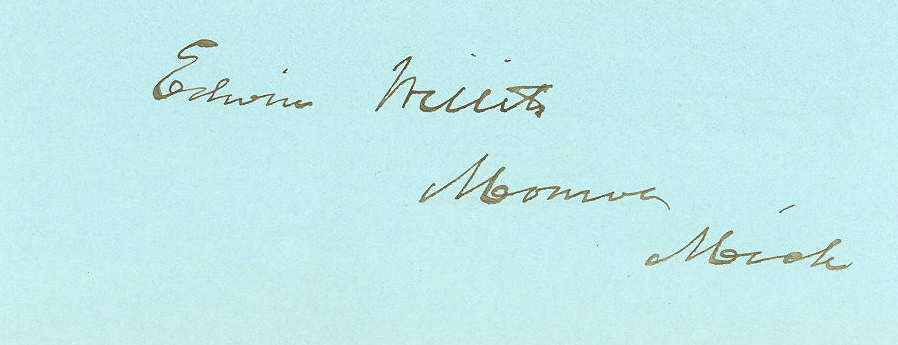 Edwin Willits
Monroe
Mich